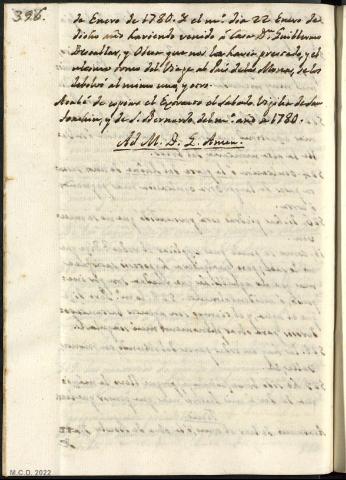 396.
de Enero de 1780. Y el mº dia 22 Enero de
dicho año haviendo venido á Casa Dn. Guillermo
Descallar, y Oliver que nos los havia prestado, y el
ultimo tomo del Viage al Pais de las Monas, se los
debolví al mismo una, y otro.
Acabé de copiar el Exonario el Sabado Vigilia de San
Joachin, y de S. Bernardo del mº. año de 1780.
Ad M. D. G. Amen.
M.C.D. 2022